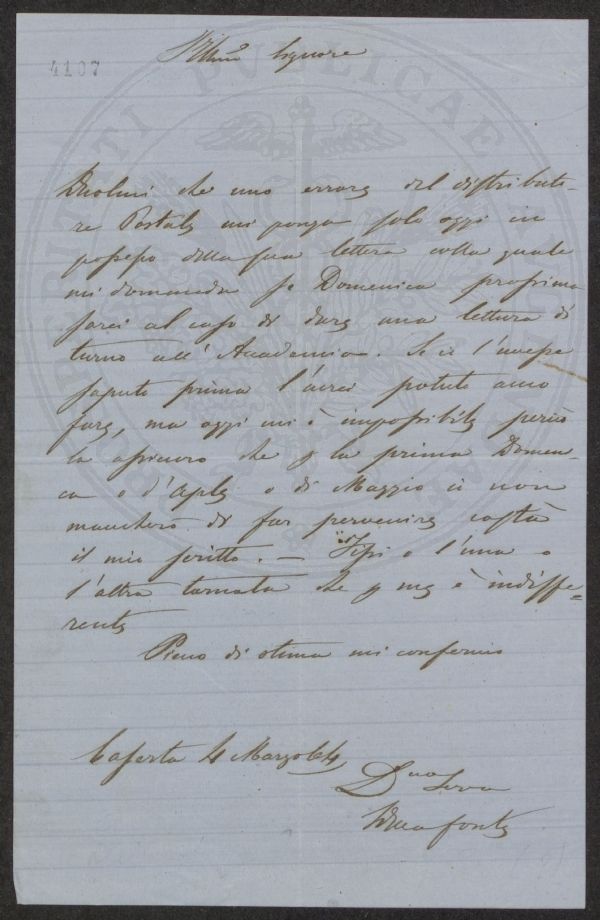 Illmo Signore
4107
Duolmi che uno errore del distributo-
re Postale mi ponga solo oggi in
possesso della sua lettera colla quale
mi domanda se Domenica prossima
sarei al caso di dare una lettura di
turno all'Accademia. Se io l'avessi
saputo prima l'avrei potuto anco
fare, ma oggi mi è impossibile perciò
la assicuro che p la prima Domeni-
ca o d'Aple o di Maggio io non
mancherò di far pervenire costà
il mio scritto. — Fissi o l'una o
l'altra tornata che p me è indiffe=
rente
Pieno di stima mi confermo
Caserta 4 Marzo 64